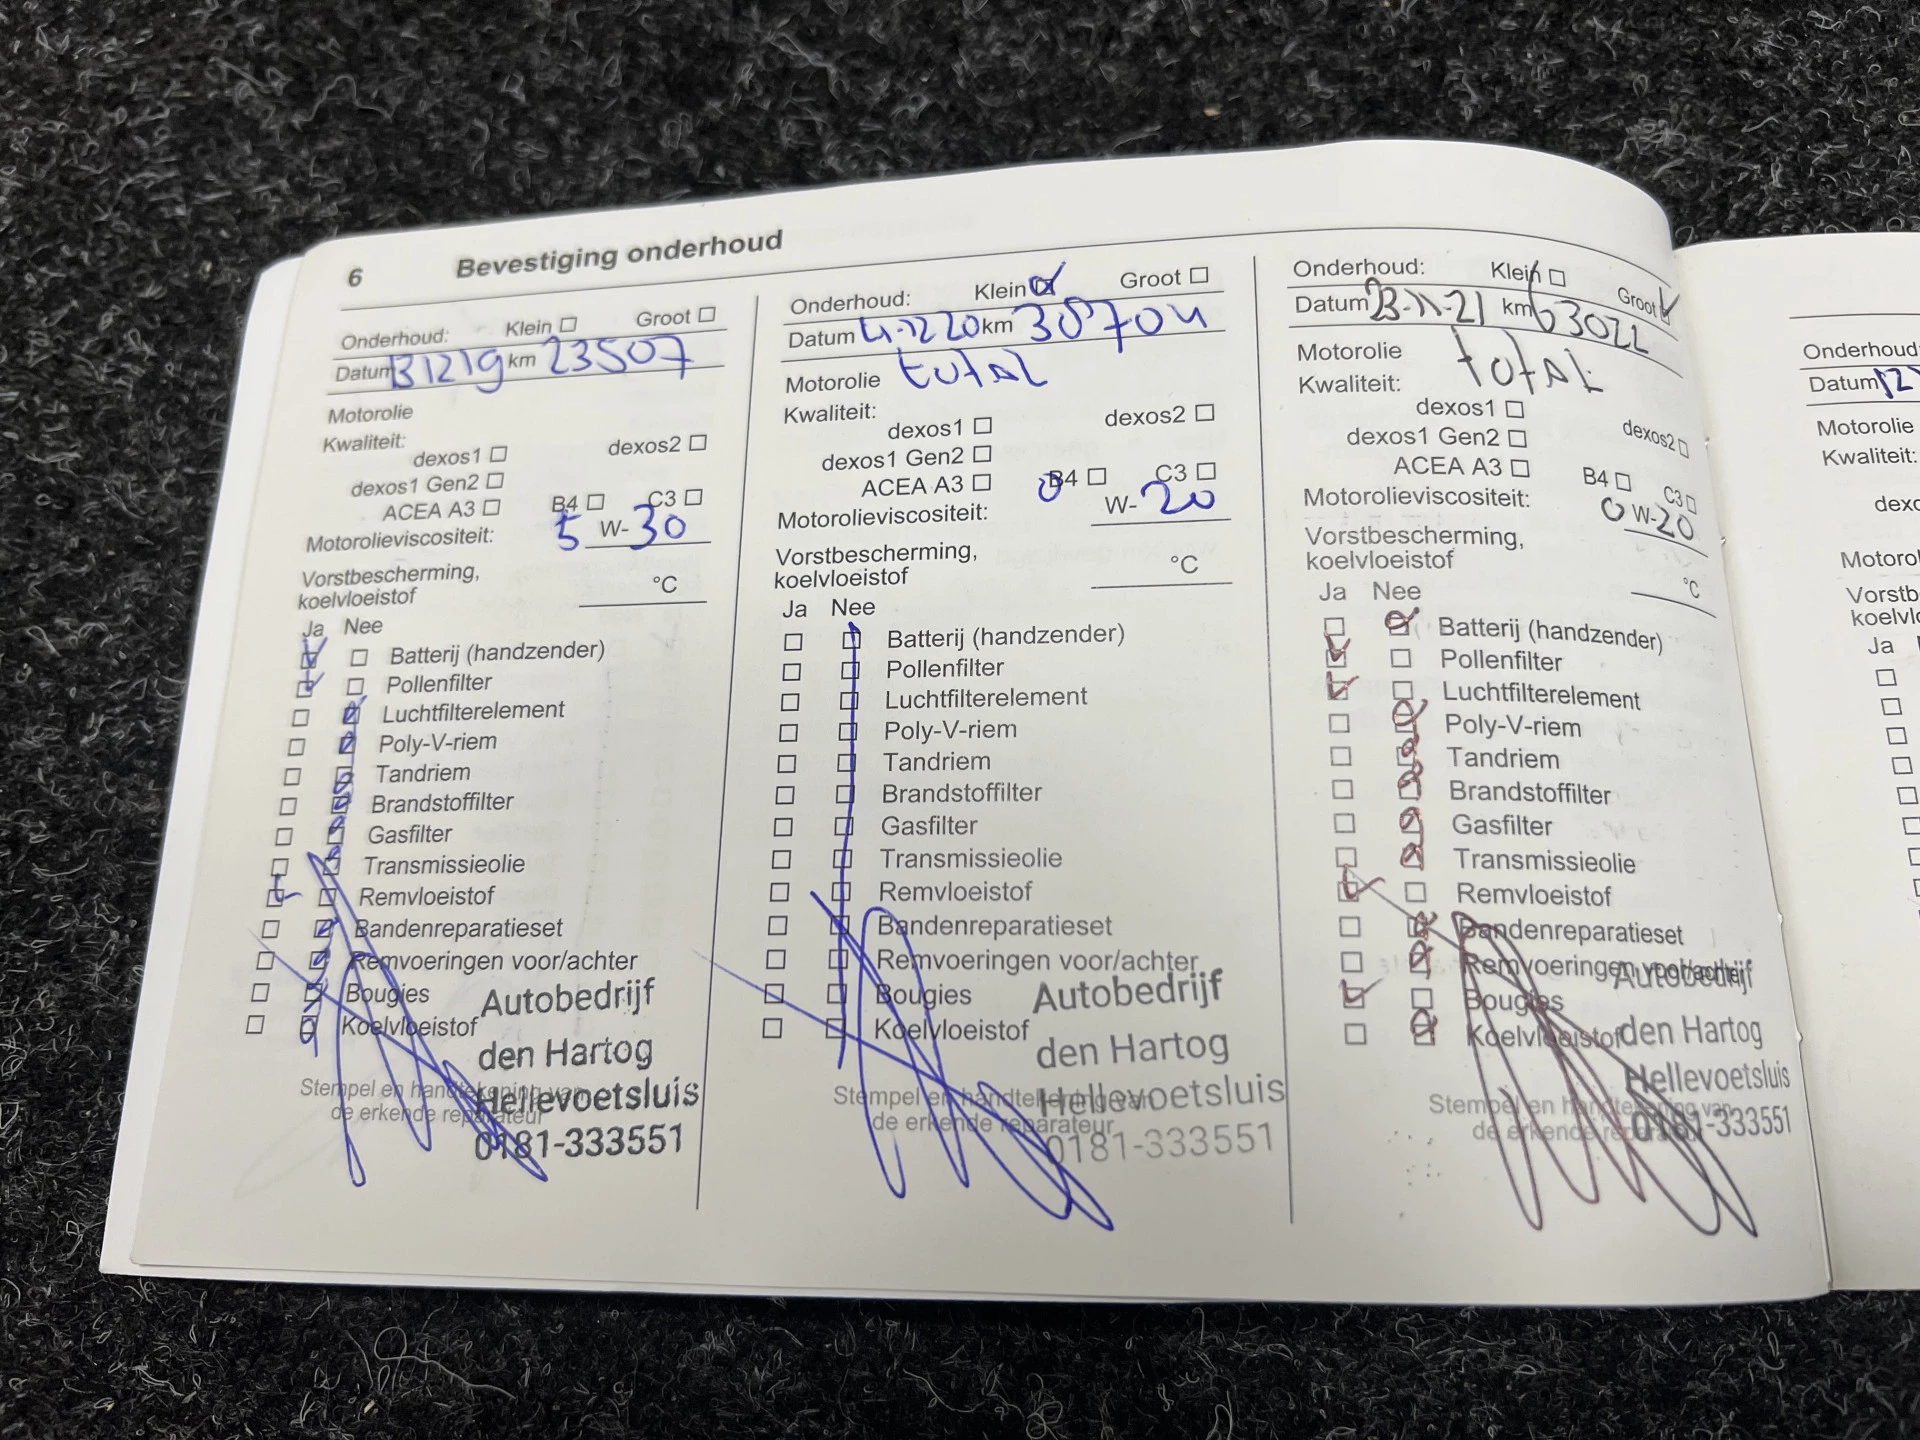 6 Bevestiging onderhoud
Onderhoud: Klein Groot
Datum 131219 km 23507
Motorolie
Kwaliteit:
dexos1 dexos2
dexos1 Gen2
ACEA A3 B4 C3
Motorolieviscositeit: 5 W-30
Vorstbescherming,
koelvloeistof °C
Ja Nee
Batterij (handzender)
Pollenfilter
Luchtfilterelement
Poly-V-riem
Tandriem
Brandstoffilter
Gasfilter
Transmissieolie
Remvloeistof
Bandenreparatieset
Remvoeringen voor/achter
Bougies
Koelvloeistof
Stempel en handtekening van
de erkende reparateur
Autobedrijf
den Hartog
Hellevoetsluis
0181-333551
Onderhoud: Klein Groot
Datum 4-12 20 km 38704
Motorolie total
Kwaliteit:
dexos1 dexos2
dexos1 Gen2
ACEA A3 B4 C3
Motorolieviscositeit: 0 W-20
Vorstbescherming,
koelvloeistof °C
Ja Nee
Batterij (handzender)
Pollenfilter
Luchtfilterelement
Poly-V-riem
Tandriem
Brandstoffilter
Gasfilter
Transmissieolie
Remvloeistof
Bandenreparatieset
Remvoeringen voor/achter
Bougies
Koelvloeistof
Stempel en handtekening van
de erkende reparateur
Autobedrijf
den Hartog
Hellevoetsluis
0181-333551
Onderhoud: Klein Groot
Datum 23-11-21 km 63022
Motorolie total
Kwaliteit:
dexos1 dexos2
dexos1 Gen2
ACEA A3 B4 C3
Motorolieviscositeit: 0 W-20
Vorstbescherming,
koelvloeistof °C
Ja Nee
Batterij (handzender)
Pollenfilter
Luchtfilterelement
Poly-V-riem
Tandriem
Brandstoffilter
Gasfilter
Transmissieolie
Remvloeistof
Bandenreparatieset
Remvoeringen voor/achter
Bougies
Koelvloeistof
Stempel en handtekening van
de erkende reparateur
Autobedrijf
den Hartog
Hellevoetsluis
0181-333551
Onderhoud:
Datum 12
Motorolie
Kwaliteit:
Ja